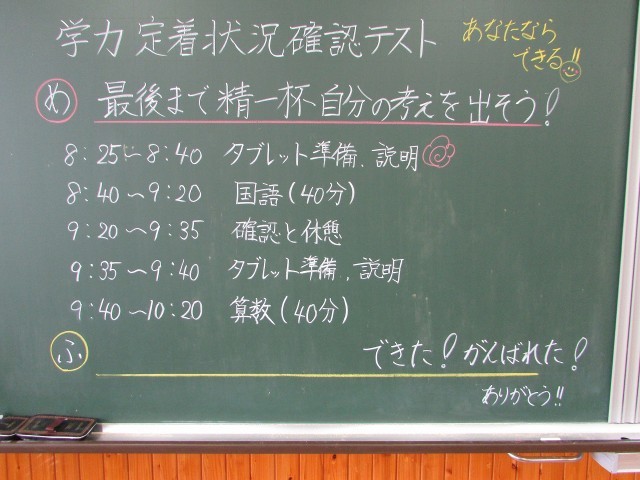 学力定着状況確認テスト
あなたなら
できる!!
め 最後まで精一杯自分の考えを出そう!
8:25～8:40 タブレット準備、説明
8:40～9:20 国語(40分)
9:20～9:35 確認と休憩
9:35～9:40 タブレット準備、説明
9:40～10:20 算数(40分)
ふ できた!がんばれた!
ありがとう!!